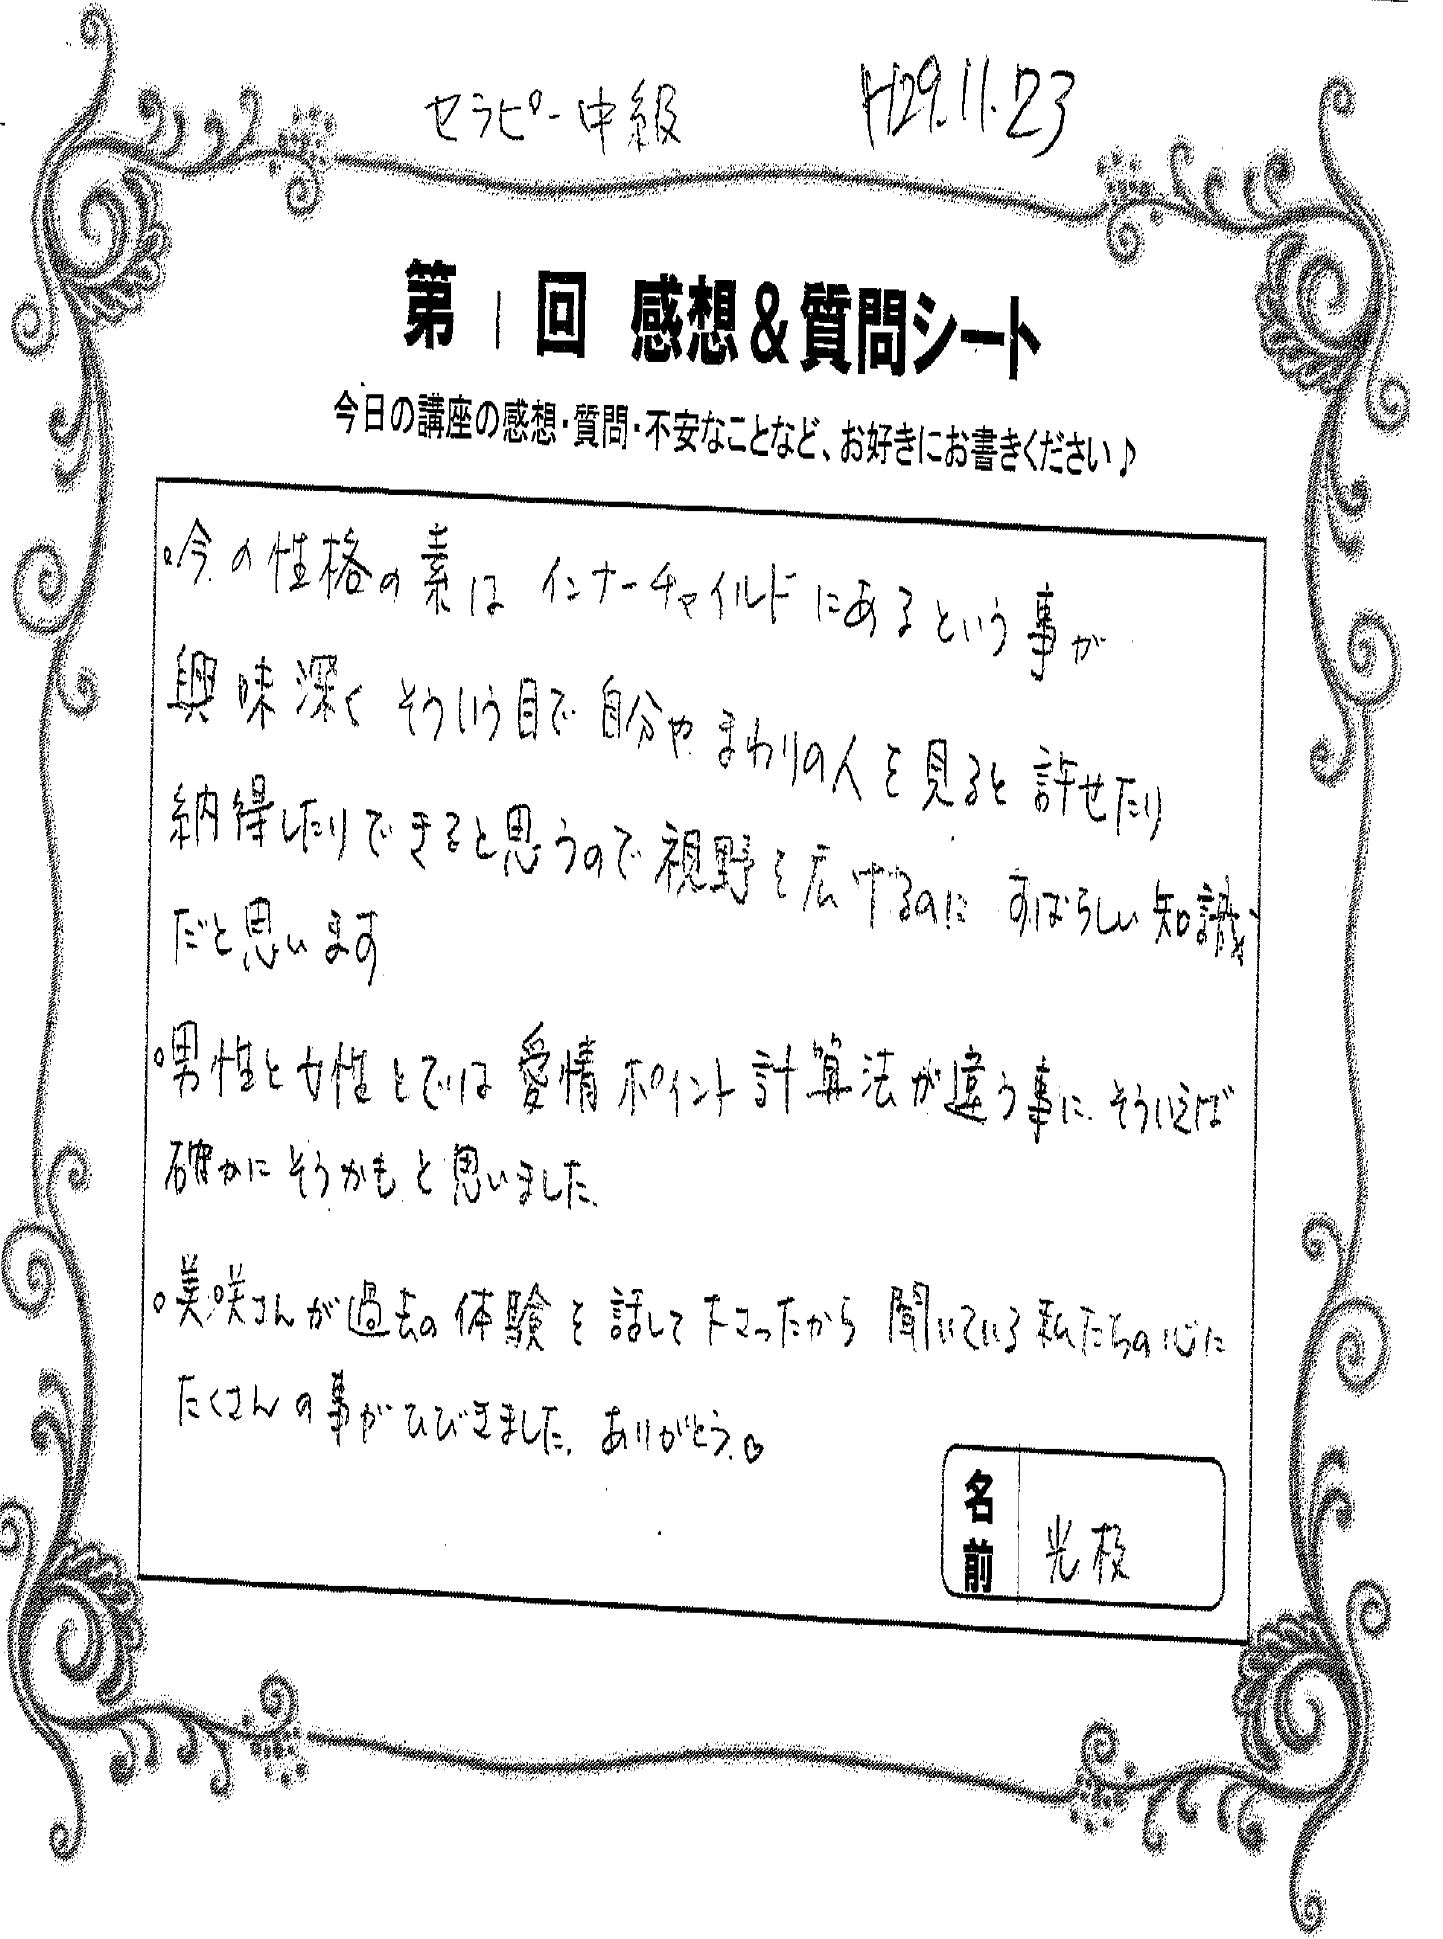 セラピー中級 H29.11.23
第1回 感想&質問シート
今日の講座の感想・質問・不安なことなど、お好きにお書きください♪
。今の性格の素は インナーチャイルドにあるという事が
興味深く そういう目で 自分や まわりの人を見ると 許せたり
納得したりできると思うので視野を広げるのに すばらしい知識
だと思います
。男性と女性とでは 愛情ポイント計算法が違う事に そういえば
確かに そうかも と思いました
。美咲さんが過去の体験を話して下さったから 聞いている私たちの心に
たくさんの事がひびきました. ありがとう♡
名前 光枝